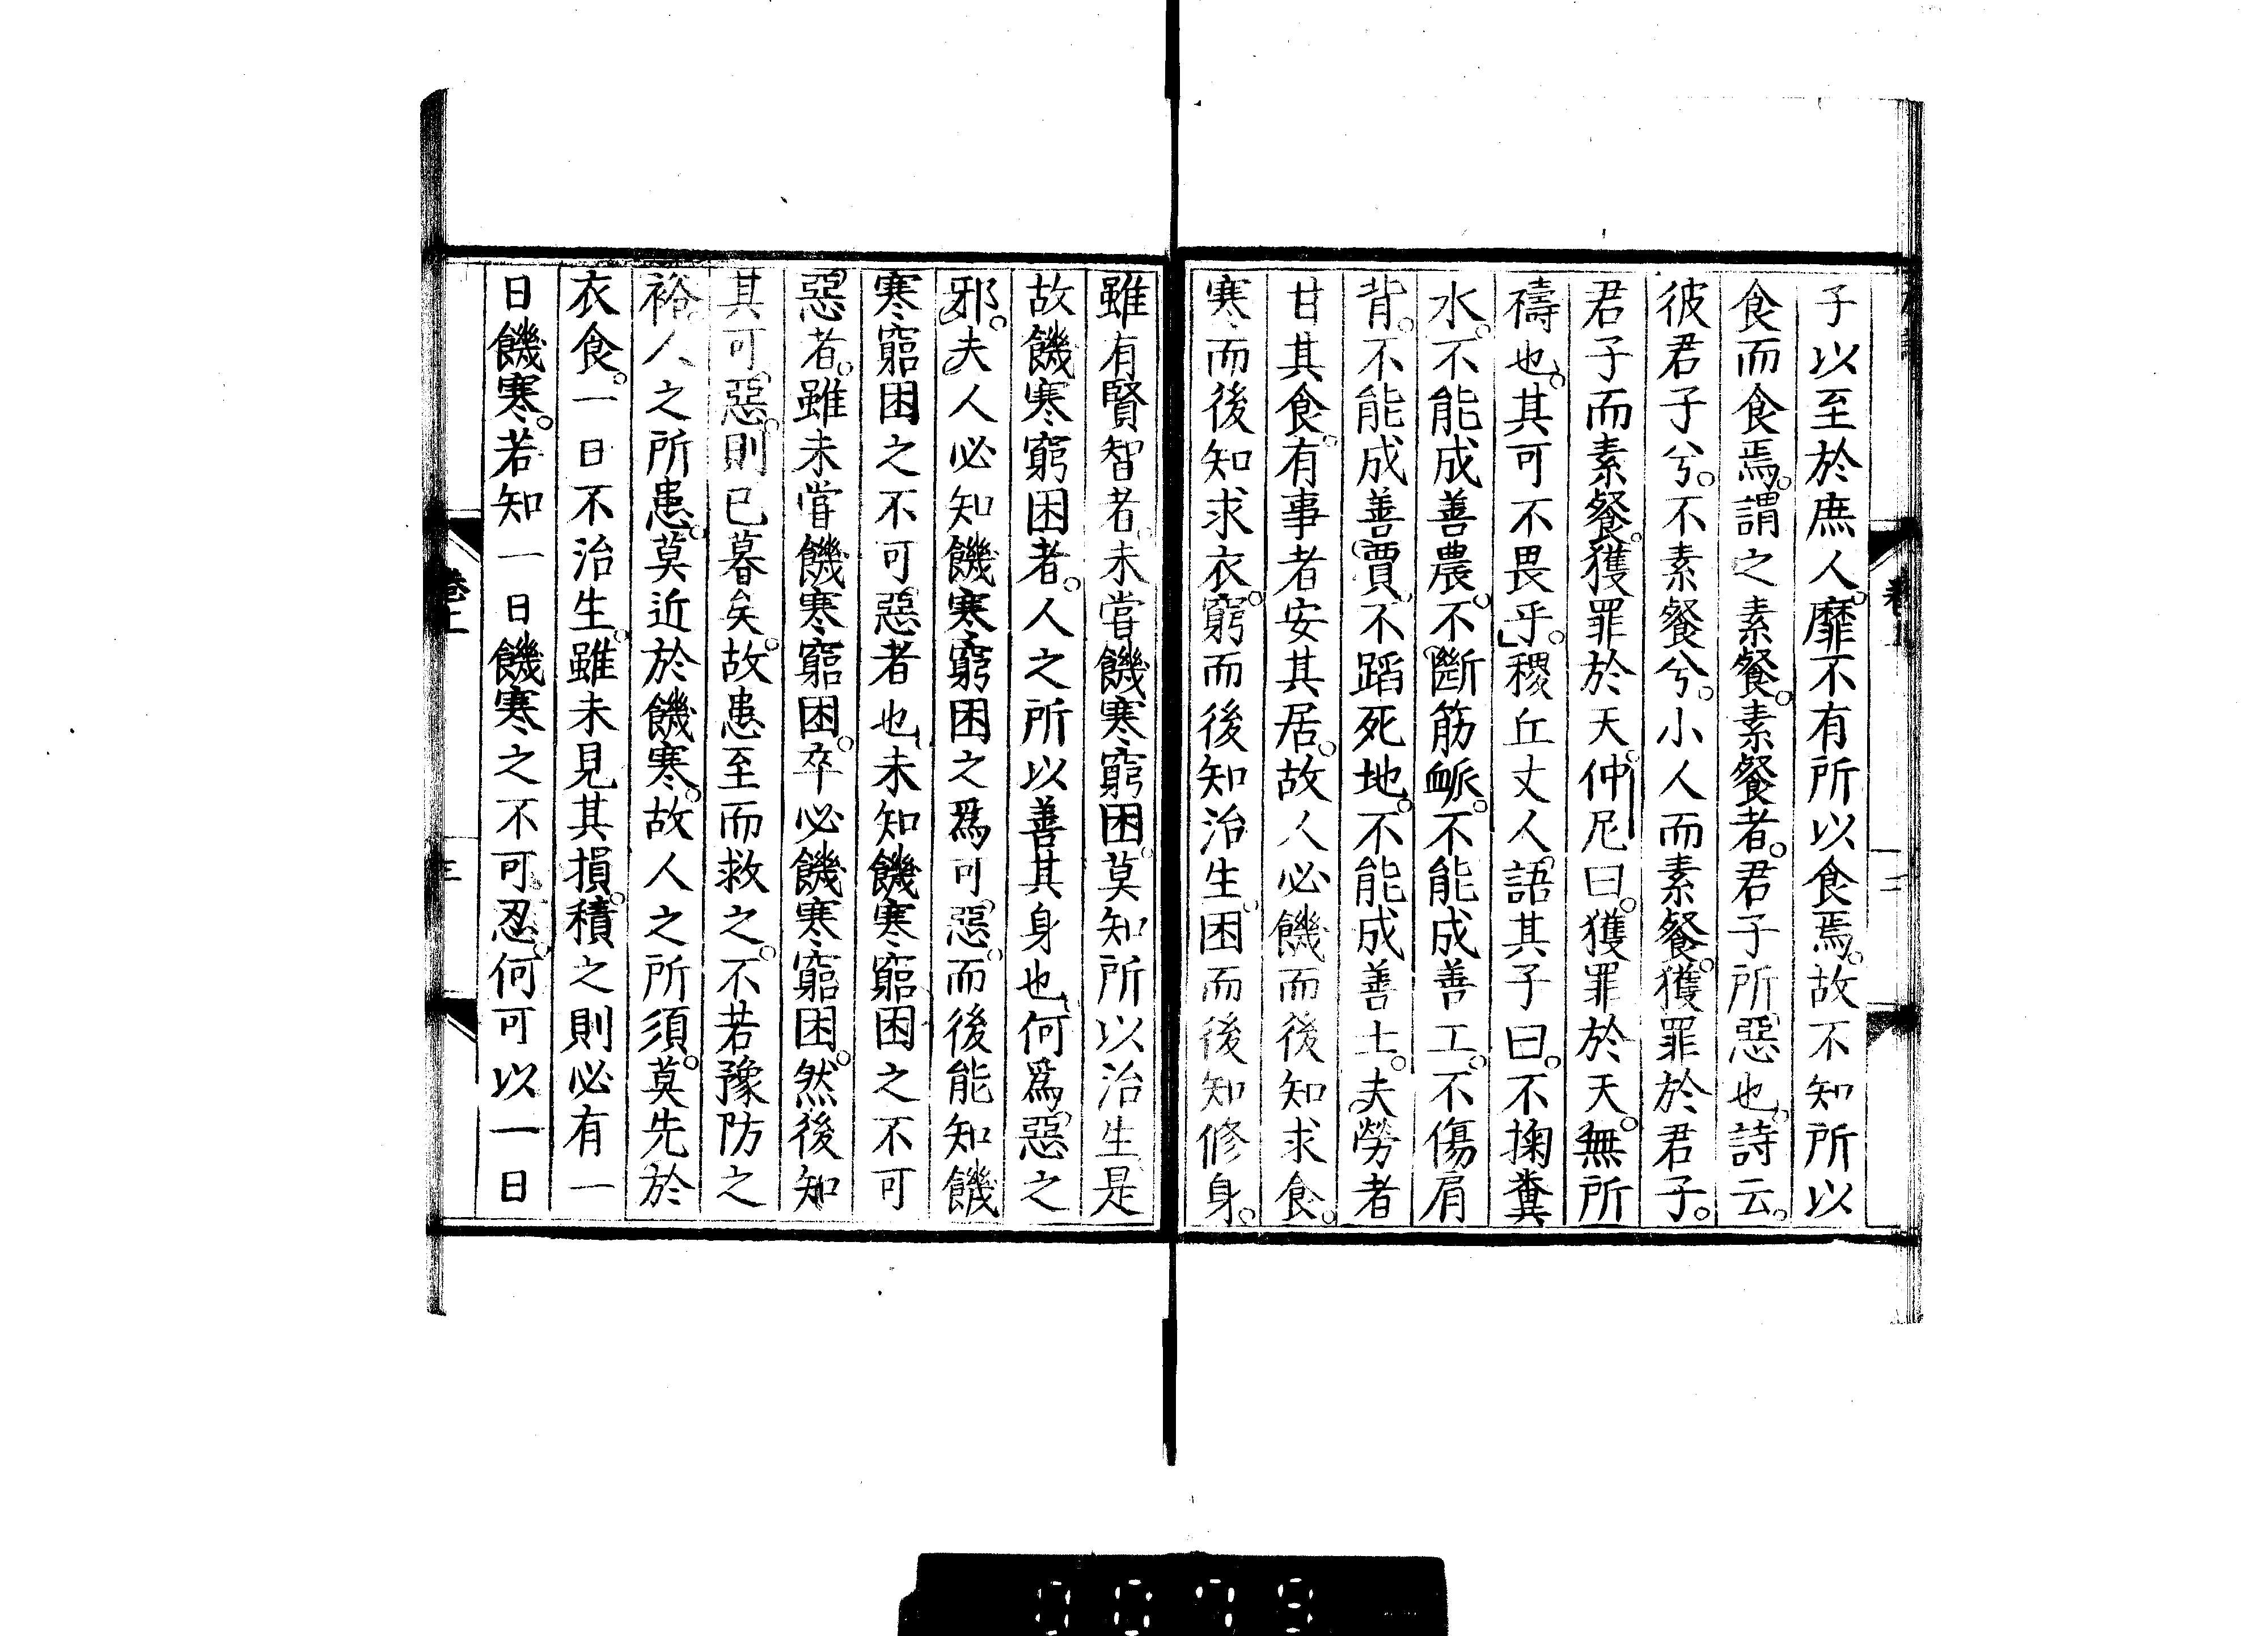 子以至於庶人。靡不有所以食焉。故不知所以
食而食焉。謂之素餐。素餐者。君子所惡也。詩云。
彼君子兮。不素餐兮。小人而素餐。獲罪於君子。
君子而素餐。獲罪於天。仲尼曰。獲罪於天。無所
禱也。其可不畏乎。」稷丘丈人。語其子曰。不掬糞
水。不能成善農。不斷筋衇。不能成善工。不傷肩
背。不能成善賈。不蹈死地。不能成善士。夫勞者
甘其食。有事者安其居。故人必饑而後知求食。
寒而後知求衣。窮而後知治生。困而後知修身。
雖有賢智者。未嘗饑寒窮困。莫知所以治生。是
故饑寒窮困者。人之所以善其身也。何爲惡之
邪。夫人必知饑寒窮困之爲可惡。而後能知饑
寒窮困之不可惡者也。未知饑寒窮困之不可
惡者。雖未嘗饑寒窮困。卒必饑寒窮困。然後知
其可惡。則已暮矣。故患至而救之。不若豫防之
裕。人之所患。莫近於饑寒。故人之所須。莫先於
衣食。一日不治生。雖未見其損。積之則必有一
日饑寒。若知一日饑寒之不可忍。何可以一日
卷上
三